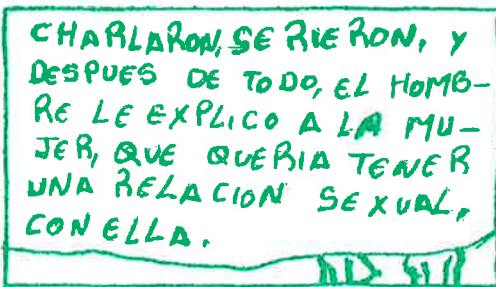 CHARLARON, SE RIERON, Y
DESPUES DE TODO, EL HOMB-
RE LE EXPLICO A LA MU-
JER, QUE QUERIA TENER
UNA RELACION SEXUAL,
CON ELLA.